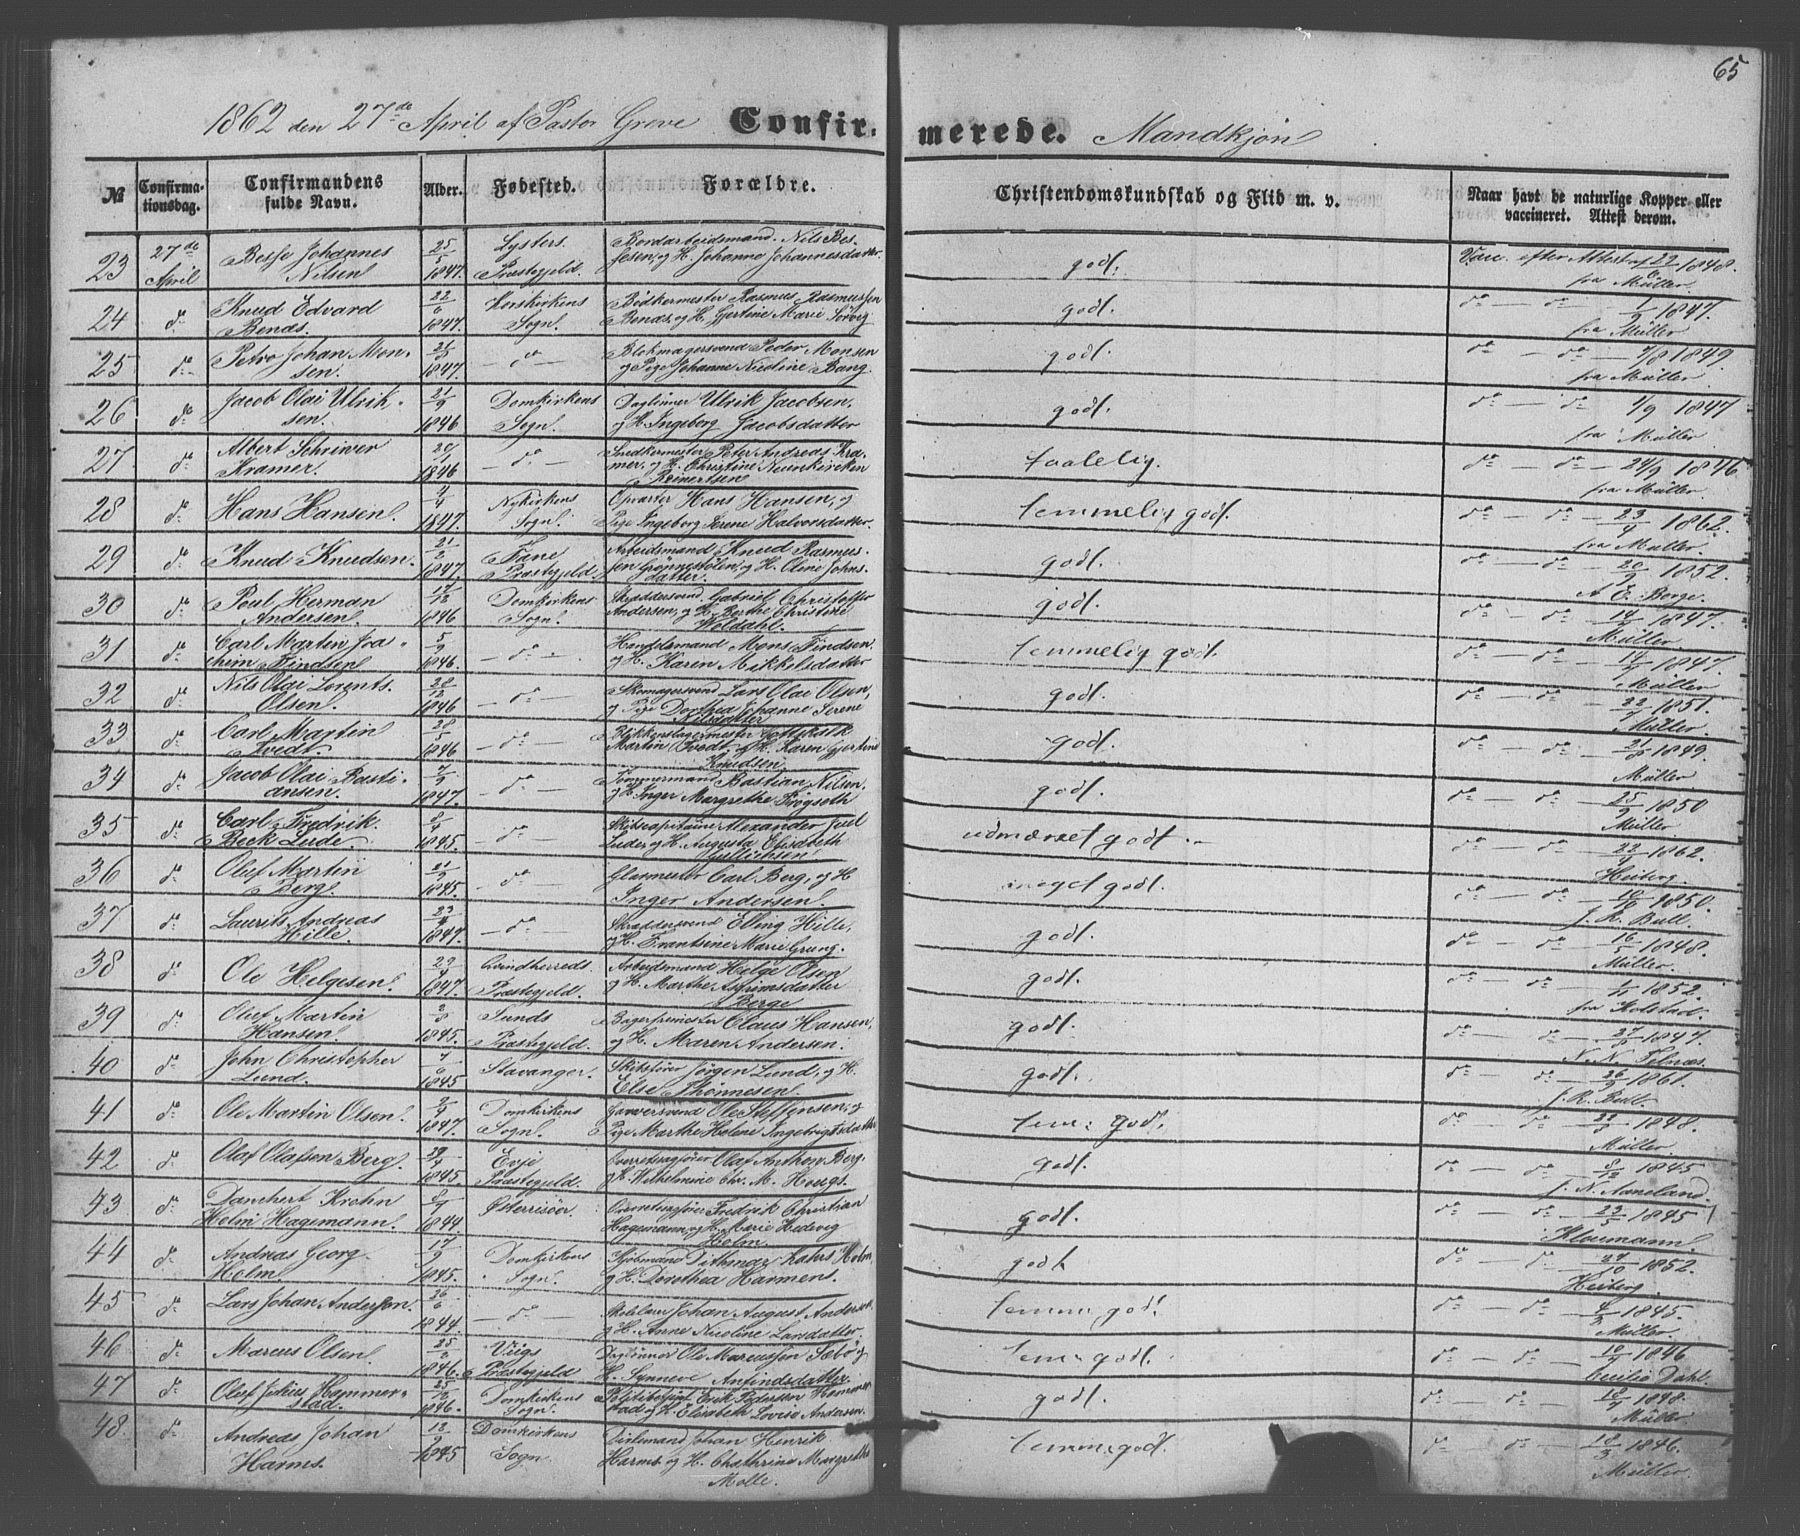 65
1862 den 27de April af Pastor Greve Confirmerede. Mandkjøn
№ Confirmationsdag. Confirmandens fulde Navn. Alder. Fødested. Forældre. Christendomskundskab og Flid m. v. Naar havt de naturlige Kopper eller vaccineret. Attest derom.
23 27de April Besse Johannes Nilsen 25/5 1847. Lysters Præstegjeld. Bordarbeidsmand Nils Bessesen, og H. Johanna Johannesdatter. god. Vacc. efter Attest af 22/6 1848. fra Müller.
24 do Knud Edvard Bends. 22/6 1847. Korskirkens Sogn. Bødkermester Rasmus Rasmussen Bends, og H. Gjertine Marie Sørveg god. do — do — 1/9 1847. fra Müller
25 do Petro Johan Monsen. 21/3 1847. do Blokmagersvend Peder Monsen og Pige Johanne Nicoline Bang. god. do — do — 7/8 1849. fra Müller.
26 do Jacob Olai Ulriksen. 21/9 1846 Domkirkens Sogn. Dagleiner Ulrik Jacobsen, og H. Ingeborg Jacobsdatter god. do — do — 2/9 1847 fra Müller.
27 do Albert Schriwer Kramer. 20/1 1846 — do — Snedkermester Peter Andreas Kramer, og H. Christine Neumkircken Reinertsen taalelig. do — do — 24/9 1846 fra Müller.
28 do Hans Hansen. 4/4 1847. Nykirkens Sogn. Opvarter Hans Hansen, og Pige Ingeborg Serene Halvorsdatter. temmelig god. do — do — 23/4 1862. fra Müller.
29 do Knud Knudsen. 21/2 1847. Fane Præstegjeld. Arbeidsmand Knud Rasmussen Grønnestølen, og H. Oline Johnsdatter. god. do — do — 20/9 1852. A. E. Berge.
30 do Poul Herman Andersen. 17/12 1846 Domkirkens Sogn. Skræddersvend Gabriel Christoffer Andersen, og H. Berthe Christine Woldahl. god. do — do — 14/9 1847. Müller.
31 do Carl Martin Joachim Findsen. 5/9 1846. — do — Handelsmand Mons Findsen og H. Karen Mikkelsdatter temmelig god. do — do — 14/9 1847. Müller
32 do Nils Olai Lorents Olsen. 28/12 1846 — do — Skomagersvend Lars Olai Olsen, og Pige Dorthea Johanne Serene Nilsdatter god. do — do — 22/7 1851. Müller.
33 do Carl Martin Tvedt. 28/5 1846 — do — Blikkenslagermester Martin Tvedt og H. Karen Gjertine Knudsen god. do — do — 21/8 1849. Müller
34 do Jacob Olai Bastiansen. 7/2 1847. — do — Tømmermand Bastian Nilsen, og H. Inger Margrethe Frøyseth god. do — do — 25/9 1850 Müller.
35 do Carl Fredrik Beck Lude. 8/4 1845. — do — Skibscapitaine Alexander Juel Luder og H. Augusta Elisabeth udmærket god. do — do — 22/4 1862. Heiberg.
36 do Oluf Martin Berg. 21/9 1845. — do — Glasmester Carl Berg, og H Inger Andersen. meget god. do — do — 10/10 1850. J. R. Bull.
37 do Laurits Andreas Hille. 23/4 1847. — do — Skræddersvend Elling Hille, og H. Frantsene Marie Grung. god. do — do — 16/5 1848. Müller.
38 do Ole Helgesen. 29/4 1847. Qvindherreds Præstegjeld. Arbeidsmand Helge Olsen og H. Marthe Asgrimsdatter Berge god. do — do — 1/11 1852. fra Kolstad.
39 do Oluf Martin Hansen. 2/3 1845. Sunds Præstegjeld. Bagersmester Claus Hansen, og H. Maren Andersen. god. do — do — 27/8 1847. N. N. Telnæs.
40 do John Christopher Lund. 7/6 1845 Stavanger. Skibsfører Jørgen Lund, og H. Else Thønnesen. god. do — do — 26/9 1861. J. R. Bull.
41 do Ole Martin Olsen. 2/4 1847. Domkirkens Sogn. Garversvend Ole Steffensen, og Pige Marthe Helene Ingebrigtsdatter tem: god. do — do — 22/8 1848. Müller.
42 do Olaf Olafsen Berg. 29/4 1845. Evje Præstegjeld. Overretssagfører Olaf Anthon Berg. og H. Wilhelmine Chr. M. Hougs. god. do — do — 8/12 1845 J. N. Aaneland.
43 do Danchert Krohn Holm Hagemann. 8/7 1844. Østerrisöer. Overretssagfører Fredrik Christian Hagemann, og H. Marie Hedevig Holm. god. do — do — 23/5 1845 Kloumann.
44 do Andreas Georg Holm. 17/9 1845. Domkirkens Sogn. Kjøbmand Dithmar Kahrs Holm og H. Dorothea Harmens. god do — do — 27/10 1852. Heiberg.
45 do Lars Johan Anderssen. 26/6 1844. — do — Johan August Andersen, og H. Anne Nicoline Larsdatter. temm. god. do — do — 4/3 1845. Müller.
46 do Marcus Olsen. 25/2 1846. Viigs Præstegjeld Dagleiner Ole Marcussen Sæbø og H. Synneve Anfindsdatter tem: god. do — do — 10/7 1846 Cecilia Dahl.
47 do Oluf Julius Hammerstad. 25/12 1846. Domkirkens Sogn. Politibetjent Erik Pedersen Hammerstad og H. Elisabeth Lovise Andersen. god. do — do — 18/7 1848. Müller
48 do Andreas Johan Harms. 12/9 1845 Domkirkens Sogn Johan Henrik Harms og H. Chathrina Margretha Molle. temm: god. do — do — 18/3 1846. Müller.